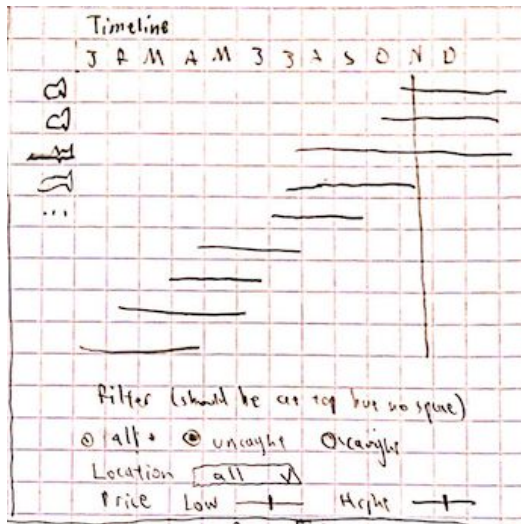 Timeline
J F M A M J J A S O N D
...
Filter (should be at top but no space)
all uncaught caught
Location all
Price Low High